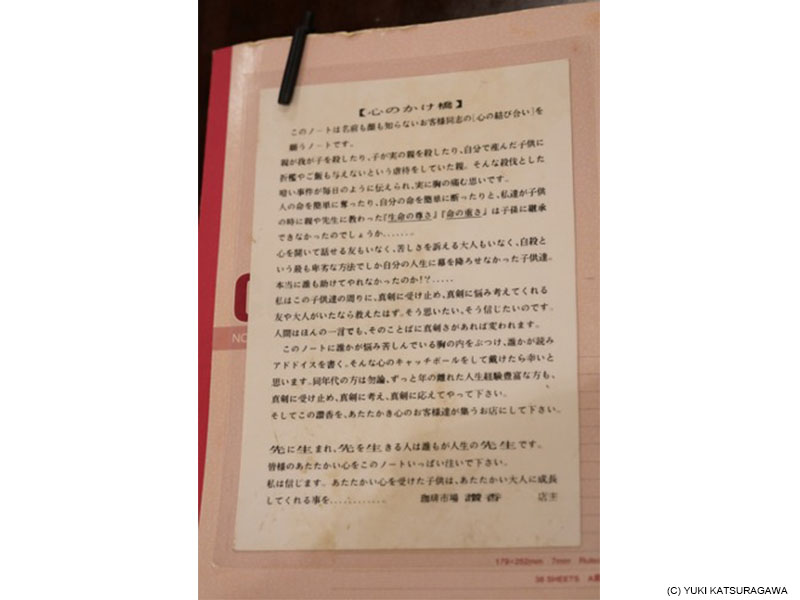 【心のかけ橋】
このノートは名前も顔も知らないお客様同志の〔心の結び合い〕を
願うノートです。
親が我が子を殺したり、子が実の親を殺したり、自分で産んだ子供に
折檻やご飯も与えないという虐待をしていた親。そんな殺伐とした
暗い事件が毎日のように伝えられ、実に胸の痛む思いです。
人の命を簡単に奪ったり、自分の命を簡単に断ったりと、私達が子供
の時に親や先生に教わった『生命の尊さ』『命の重さ』は子孫に継承
できなかったのでしょうか.......
心を開いて話せる友もいなく、苦しさを訴える大人もいなく、自殺と
いう最も卑劣な方法でしか自分の人生に幕を降ろせなかった子供達。
本当に誰も助けてやれなかったのか!?.....
私はこの子供達の周りに、真剣に受け止め、真剣に悩み考えてくれる
友や大人がいたなら救えたはず。そう思いたい、そう信じたいのです。
人間はほんの一言でも、そのことばに真剣さがあれば変われます。
このノートに誰かが悩み苦しんでいる胸の内をぶつけ、誰かが読み
アドドイスを書く。そんな心のキャッチボールをして戴けたら幸いと
思います。同年代の方は勿論、ずっと年の離れた人生経験豊富な方も、
真剣に受け止め、真剣に考え、真剣に応えてやって下さい。
そしてこの讃香を、あたたかき心のお客様達が集うお店にして下さい。
先に生まれ、先を生きる人は誰もが人生の先生です。
皆様のあたたかい心をこのノートいっぱい注いで下さい。
私は信じます。あたたかい心を受けた子供は、あたたかい大人に成長
してくれる事を............ 珈琲市場 讃香 店主
NO
179×252mm 7mm Ruled
36 SHEETS A
(C) YUKI KATSURAGAWA